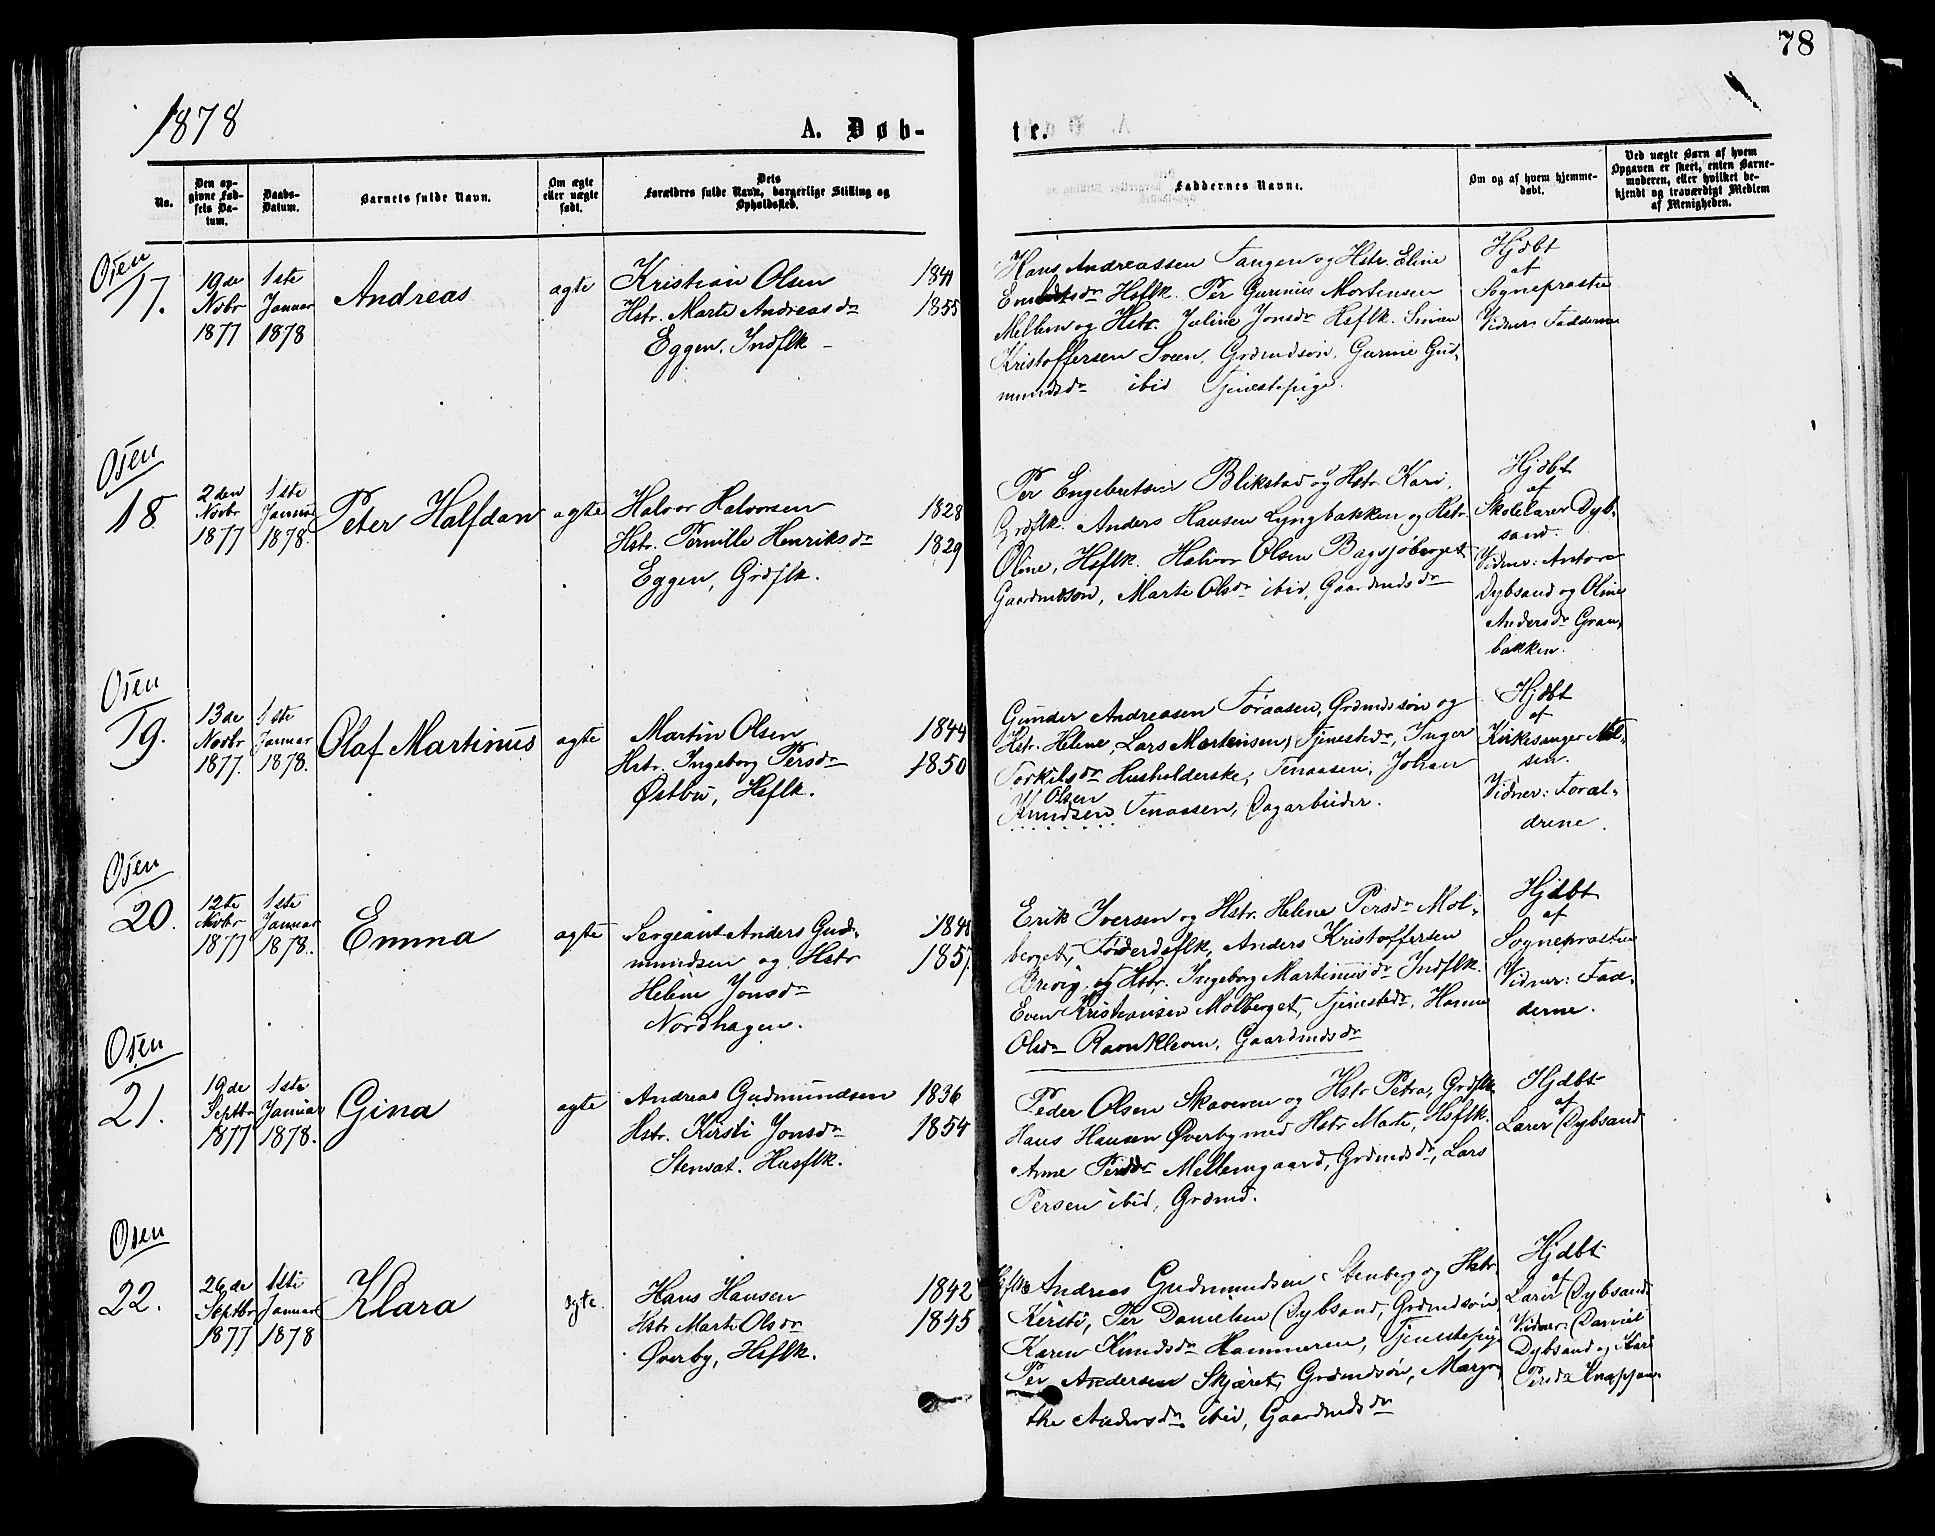 78
1878
A. Døb-
te.
No.
Den op-
givne Fød-
sels Da-
tum.
Daabs-
Datum.
Barnets fulde Navn.
Om ægte
eller uægte
født.
Dets
Forældres fulde Navn, borgerlige Stilling og
Opholdssted.
Faddernes Navne.
Om og af hvem hjemme-
døbt.
Ved uægte Børn af hvem
Opgaven er skeet, enten Barne-
moderen, eller hvilket be-
kjendt og troværdigt Medlem
af Menigheden.
Osen
17.
19de
Novbr
1877
1ste
Januar
1878
Andreas
ægte
Kristian Olsen
Hstr. Marte Andreasdr 1855
Eggen, Indflk
Hans Andreassen Tangen og Hstr. Eline
Hsflk. Per Gunnius Mortensen
og Hstr. Juline Jonsdr Hsflk. Simen
Kristoffersen Sveen, Grdmdsøn, Gunnie Gud-
mundsdr ibid Tjenestepige.
Hjdbt
af
Sognepræsten
Vidner Fadderne
Osen
18
2den
Novbr
1877
1ste
Januar
1878.
Peter Halfdan
ægte
Halvor Halvorsen 1828
Hstr. Pernille Henriksdr 1829
Eggen, Grdflk.
Per Engebretsen Blikstad og Hstr. Kari,
Grdflk. Anders Hansen Lyngbakken og Hstr.
Oline, Hsflk. Halvor Olsen Bagsjøberget
Gaardmdsøn, Marte Olsdr ibid, Gaardmdsdr
Hjdbt
af
Skolelærer Dyb-
sand.
Vidner: Antora
Dybsand og Oline
Andersdr Gran-
bakken.
Osen
19.
13de
Novbr
1877.
1ste
Januar
1878.
Olaf Martinus
ægte
Martin Olsen 1844
Hstr. Ingeborg Persdr 1850
Østbu, Hsflk.
Gunder Andreasen Toraasen, Grdmdssøn og
Hstr. Helene, Lars Mortensen, Tjenestedr, Inger
Torkilsdr Husholderske, Tenaasen, Johan
Olsen
Knudsen Tenaasen, Dagarbeider.
Hjdbt
af
Kirkesanger Niel-
sen.
Vidner: Foræl-
drene.
Osen
20.
12te
Novbr
1877
1ste
Januar
1878.
Emma
ægte
Sergeant Anders Gud-
mundsen og Hstr
Helene Jonsdr
Nordhagen.
Erik Iversen og Hstr. Helene Persdr Mol-
berget, Føderdsflk, Anders Kristoffersen
Brevig, og Hstr. Ingeborg Martinusdr Indflk.
Even Kristiansen Molberget, Tjenestedr, Hanne
Olsdr Ravnkleven, Gaardmdsdr
Hjdbt
af
Sognepræsten
Vidner: Fad-
derne.
Osen
21.
19de
Septbr
1877
1ste
Januar
1878.
Gina
ægte
Andreas Gudmundsen 1836
Hstr. Kirsti Jonsdr 1854
Husflk.
Peder Olsen Skaveren og Hstr Petra, Grdflk
Hans Hansen Øverby med Hstr Marte, Hsflk.
Anne Persdr Mellemgaard, Grdmdsdr, Lars
Persen ibid, Grdmd.
Hjdbt
af
Lærer Dybsand
Osen
22.
26de
Septbr
1877
1ste
Januar
1878
Klara
ægte
Hans Hansen 1842
Hstr Marte Olsdr 1845
Øverby, Hsflk.
Andreas Gudmundsen Stenberg og Hstr.
Kirsti, Per Danielsen Dybsand, Grdmdsøn
Karen Knudsdr Hammeren, Tjenestepige
Per Andersen Skjæret, Grdmdsøn, Margre-
the Andersdr ibid, Gaardmdsdr
Hjdbt
af
Lærer Dybsand
Vidner: Daniel
Dybsand og Kari
Persdr Knappen